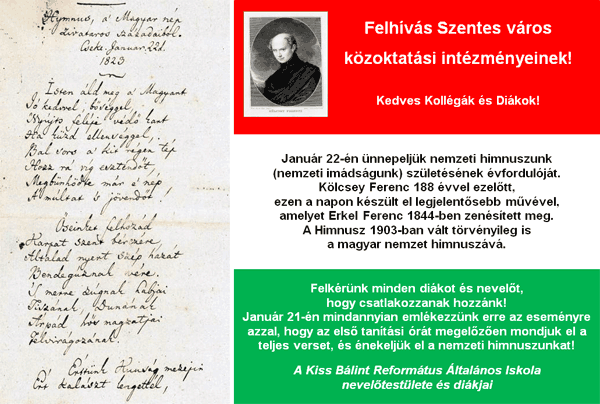 Hymnus, a' Magyar nép
zivataros századaiból.
Cseke. Januar. 22d.
1823
Isten áldd meg a' Magyart
Jó kedvvel, bőséggel,
Nyújts feléje védő kart
Ha küzd ellenséggel,
Bal sors a' kit régen tép
Hozz rá víg esztendőt,
Megbűnhődte már e' nép
A' múltat 's jövendőt!
Őseinket felhozád
Kárpát szent bérczére,
Általad nyert szép hazát
Bendegúznak vére.
'S merre zúgnak habjai
Tiszának, Dunának,
Árpád hős magzatjai
Felvirágozának.
Értünk Kunság mezején
Ért kalászt lengettél,
Felhívás Szentes város
közoktatási intézményeinek!
Kedves Kollégák és Diákok!
Január 22-én ünnepeljük nemzeti himnuszunk
(nemzeti imádságunk) születésének évfordulóját.
Kölcsey Ferenc 188 évvel ezelőtt,
ezen a napon készült el legjelentősebb művével,
amelyet Erkel Ferenc 1844-ben zenésített meg.
A Himnusz 1903-ban vált törvényileg is
a magyar nemzet himnuszává.
Felkérünk minden diákot és nevelőt,
hogy csatlakozzanak hozzánk!
Január 21-én mindannyian emlékezzünk erre az eseményre
azzal, hogy az első tanítási órát megelőzően mondjuk el a
teljes verset, és énekeljük el a nemzeti himnuszunkat!
A Kiss Bálint Református Általános Iskola
nevelőtestülete és diákjai